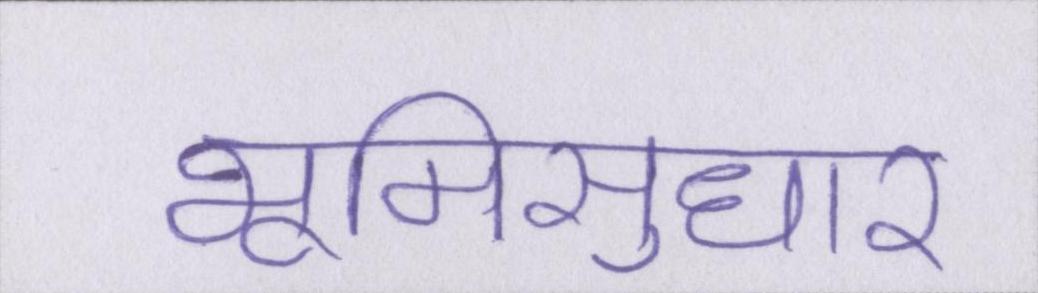 भूमिसुधार